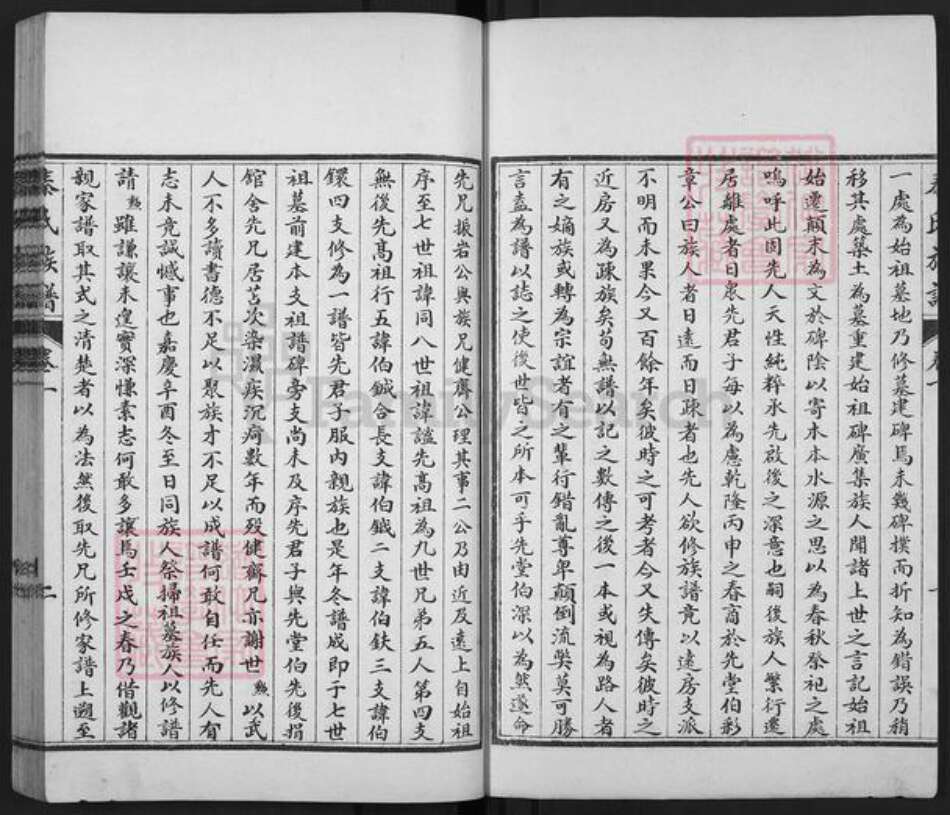 一處為始祖墓地乃修墓建碑焉未幾碑撲而折知為錯誤乃稍
移其處築土為墓重建始祖碑廣集族人聞諸上世之言記始祖
始遷顛末為文於碑陰以寄木本水源之思以為春秋祭祀之處
嗚呼此固先人天性純粹承先啟後之深意也嗣後族人繁衍遷
居離處者日衆先君子每以為慮乾隆丙申之春商於先堂伯彩
章公曰族人者日遠而日疎者也先人欲修族譜竟以遠房支派
不明而未果今又百餘年矣彼時之可考者今又失傳矣彼時之
近房又為疎族矣苟無譜以記之數傳之後一本或視為路人者
有之嫡族或轉為宗誼者有之輩行錯亂尊卑顛倒流獘莫可勝
言盍為譜以誌之使後世皆之所本可乎先堂伯深以為然遂命
先兄振岩公與族兄健齋公理其事二公乃由近及遠上自始祖
序至七世祖諱同八世祖諱謐先高祖為九世兄弟五人第四支
無後先高祖行五諱伯鉞合長支諱伯鉞二支諱伯鈇三支諱伯
鐶四支修為一譜皆先君子服內親族也是年冬譜成即于七世
祖墓前建本支祖譜碑旁支尚未及序先君子與先堂伯先後捐
館舍先兄居苫次染濕疾沉疴數年而歿健齋兄亦謝世勲以武
人不多讀書德不足以聚族才不足以成譜何敢自任而先人有
志未竟誠憾事也嘉慶辛酉冬至日同族人祭掃祖墓族人以修譜
請勲雖謙讓未遑實深慊素志何敢多讓焉壬戌之春乃借觀諸
親家譜取其式之清楚者以為法然後取先兄所修家譜上遡至
秦氏族譜
卷一
二